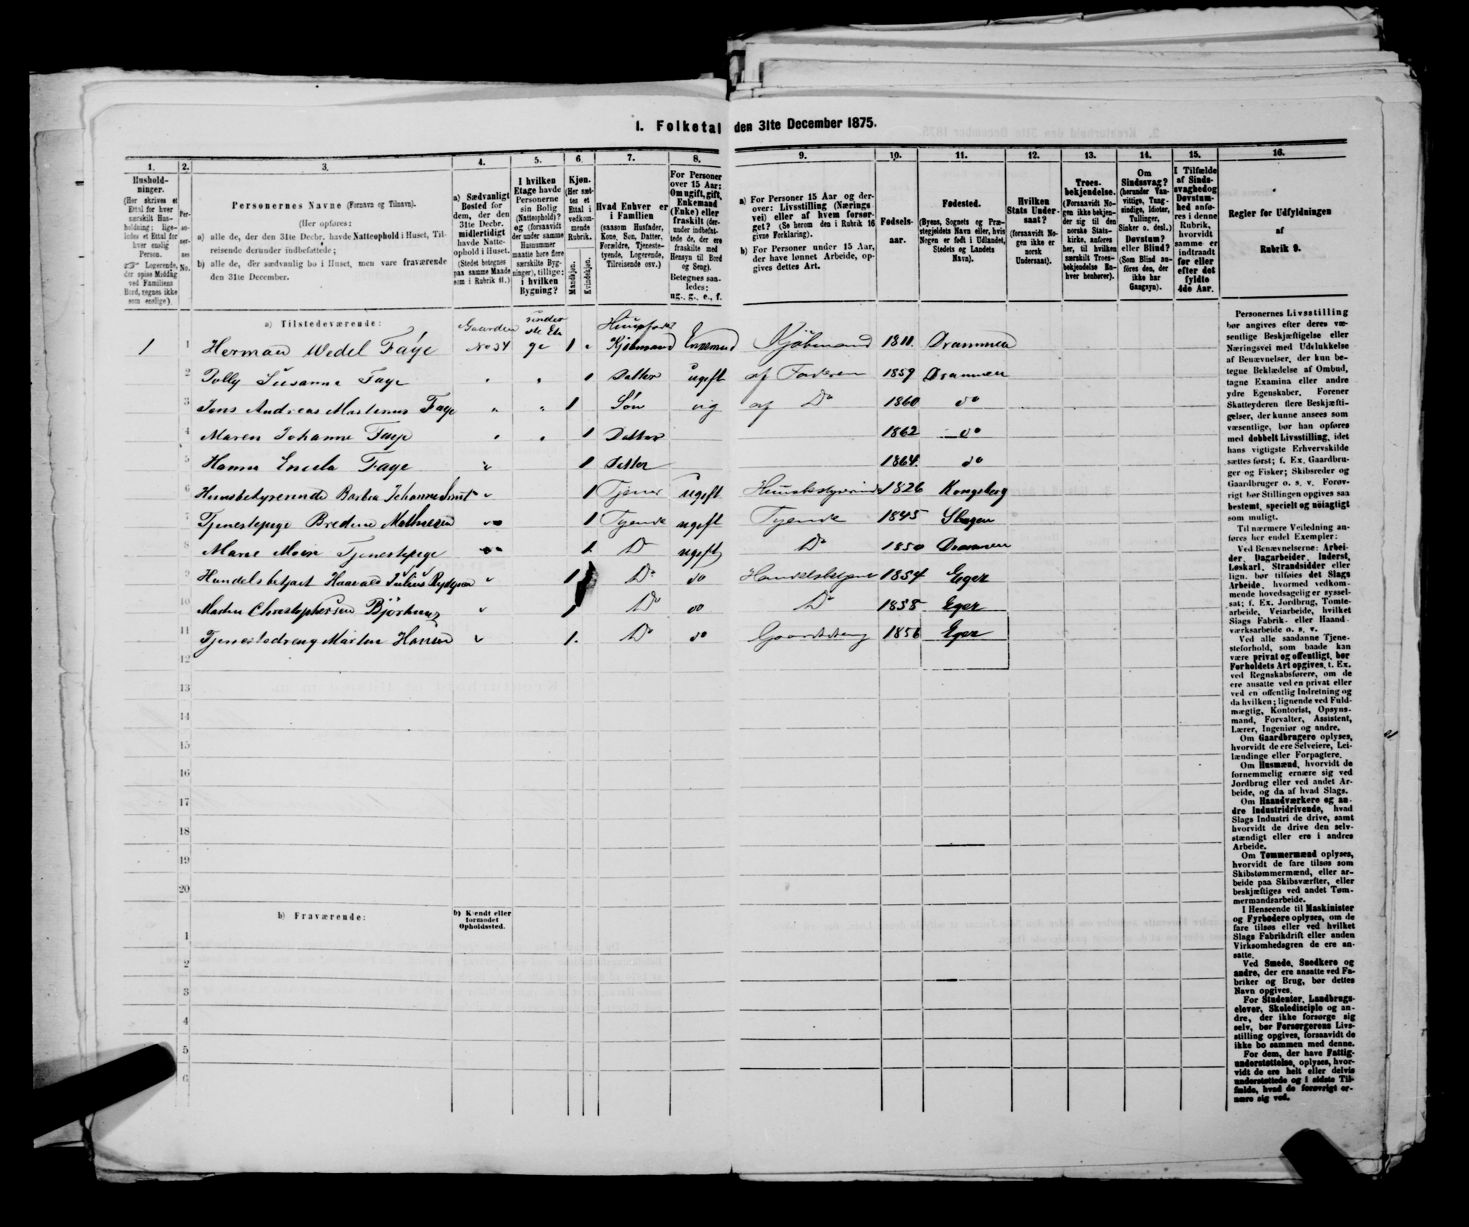 1. Folketal den 31te December 1875.
1.
2.
3.
4.
5.
6.
7.
8.
9.
10.
11.
12.
13.
14.
15.
16.
Hushold-
ninger.
(Her skrives et
Ettal for hver
særskilt Hus-
holdning; lige-
ledes et Ettal for
hver enslig
Person.
☞ Logerende,
der spise Middag
ved Familiens
Bord, regnes ikke
som enslige).
Per-
so-
ner-
nes
No.
Personernes Navne (Fornavn og Tilnavn).
(Her opføres:
a) alle de, der den 31te Decbr. havde Natteophold i Huset, Til-
reisende derunder indbefattede;
b) alle de, der sædvanlig bo i Huset, men vare fraværende
den 31te December.
a) Sædvanligt
Bosted for
dem, der den
31te Decbr.
midlertidigt
havde Natte-
ophold i Huset.
(Stedet betegnes
paa samme Maade
som i Rubrik 11.)
I hvilken
Etage havde
Personerne
sin Bolig
(Natteophold)?
og (forsaavidt
der under samme
Husnummer
maatte høre flere
særskilte Byg-
ninger), tillige:
i hvilken
Bygning?
Kjøn.
(Her sæt-
tes et
Ettal i
vedkom-
mende
Rubrik.
Mandkjøn.
Kvindekjøn.
Hvad Enhver er
i Familien
(saasom Husfader,
Kone, Søn, Datter,
Forældre, Tjeneste-
tyende, Logerende,
Tilreisende osv.)
For Personer
over 15 Aar:
Om ugift, gift,
Enkemand
(Enke) eller
fraskilt (der-
under indbefat-
tede de, der ere
fraskilte med
Hensyn til Bord
og Seng).
Betegnes saa-
ledes:
ug., g., e., f.
a) For Personer 15 Aar og der-
over: Livsstilling (Nærings-
vei) eller af hvem forsør-
get? (Se herom den i Rubrik 16
givne Forklaring).
b) For Personer under 15 Aar,
der have lønnet Arbeide, op-
gives dettes Art.
Fødsels-
aar.
Fødested.
(Byens, Sognets og Præ-
stegjeldets Navn eller, hvis
Nogen er født i Udlandet,
Stedets og Landets
Navn).
Hvilken
Stats Under-
saat?
(forsaavidt No-
gen ikke er
norsk
Undersaat).
Troes-
bekjendelse.
(Forsaavidt No-
gen ikke bekjen-
der sig til den
norske Stats-
kirke, anføres
her, til hvilken
særskilt Troes-
bekjendelse En-
hver henhører).
Om
Sindssvag?
(herunder Van-
vittige, Tung-
sindige, Idioter,
Tullinger,
Sinker o. desl.)
Døvstum?
eller Blind?
(Som Blind an-
føres den, der
ikke har
Gangsyn).
I Tilfælde
af Sinds-
svaghed og
Døvstum-
hed anfø-
res i denne
Rubrik,
hvorvidt
samme er
indtraadt
før eller
efter det
fyldte
4de Aar.
Regler for Udfyldningen
af
Rubrik 9.
a) Tilstedeværende:
Gaarden
1 1 Herman Wedel Faye No 34 1 Kjøbmand Enkemand Kjøbmand 1811. Drammen
2 Polly Susanna Faye " " 1 Datter ugift af Faderen 1859 Drammen
3 Jens Andreas Martinus Faye " " 1 Søn ug af Do 1860 do
4 Maren Johanne Faye " " 1 Datter 1862 do
5 Hanna Faye " 1 Datter 1864. do
6 Huusbestyrerinde Barbra Johanne " 1 Tjener ugift 1826 Kongsberg
7 Tjenestepige Bredine Mathisen " 1 Tyende ugift Tyende 1845 Skogen
8 Marie Moen Tjenestepige " 1 Do ugift Do 1850 Drammen
9 Handelsbetjent Julius " 1 Do do Handelsbetjent 1854 Eger
10 Martin Christophersen " 1 Do do Do 1858 Eger
11 Tjenestedreng Martin Hansen " 1. Do do Gaardsdreng 1856 Eger
12
13
14
15
16
17
18
19
20
b) Fraværende:
b) Kjendt eller
formodet
Opholdssted.
1
2
3
4
5
6
Personernes Livsstilling
bør angives efter deres væ-
sentlige Beskjæftigelse eller
Næringsvei med Udelukkelse
af Benævnelser, der kun be-
tegne Beklædelse af Ombud,
tagne Examina eller andre
ydre Egenskaber. Forener
Skatteyderen flere Beskjæfti-
gelser, der kunne ansees som
væsentlige, bør han opføres
med dobbelt Livsstilling, idet
hans vigtigste Erhvervskilde
sættes først; f. Ex. Gaardbru-
ger og Fisker; Skibsreder og
Gaardbruger o. s. v. Forøv-
rigt bør Stillingen opgives saa
bestemt, specielt og nøiagtigt
som muligt.
Til nærmere Veiledning an-
føres her endel Exempler:
Ved Benævnelserne: Arbei-
der, Dagarbeider, Inderst,
Løskarl, Strandsidder eller
lign. bør tilføies det Slags
Arbeide, hvormed vedkom-
mende hovedsagelig er syssel-
sat; f. Ex. Jordbrug, Tømte-
arbeide, Veiarbeide, hvilket
Slags Fabrik- eller Haand-
værksarbeide o. s. v.
Ved alle saadanne Tjene-
steforhold, som baade kan
være privat og offentligt, bør
Forholdets Art opgives, t. Ex.
ved Regnskabsførere, om de
ere ansatte ved en privat eller
ved en offentlig Indretning og
da hvilken; lignende ved Fuld-
mægtig, Kontorist, Opsyns-
mand, Forvalter, Assistent,
Lærer, Ingeniør og andre.
Om Gaardbrugere oplyses,
hvorvidt de ere Selveiere, Lei-
lændinge eller Forpagtere.
Om Husmænd, hvorvidt de
fornemmelig ernære sig ved
Jordbrug eller ved andet Ar-
beide, og da af hvad Slags.
Om Haandværkere og an-
dre Industridrivende, hvad
Slags Industri de drive, samt
hvorvidt de drive den selv-
stændigt eller ere i andres
Arbeide.
Om Tømmermænd oplyses,
hvorvidt de fare tilsøs som
Skibstømmermænd, eller ar-
beide paa Skibsværfter, eller
beskjæftiges ved andet Tøm-
mermandsarbeide.
I Henseende til Maskinister
og Fyrbødere oplyses, om de
fare tilsøs eller ved hvilket
Slags Fabrikdrift eller anden
Virksomhedsgren de ere an-
satte.
Ved Smede, Snedkere og
andre, der ere ansatte ved Fa-
briker og Brug, bør dettes
Navn opgives.
For Studenter, Landbrugs-
elever, Skoledisciple og an-
dre, der ikke forsørge sig
selv, bør Forsørgerens Livs-
stilling opgives, forsaavidt de
ikke bo sammen med denne.
For dem, der have Fattig-
understøttelse, oplyses, hvor-
vidt de ere helt eller delvis
understøttede og i sidste Til-
fælde, hvad de forøvrigt er-
nære sig ved.